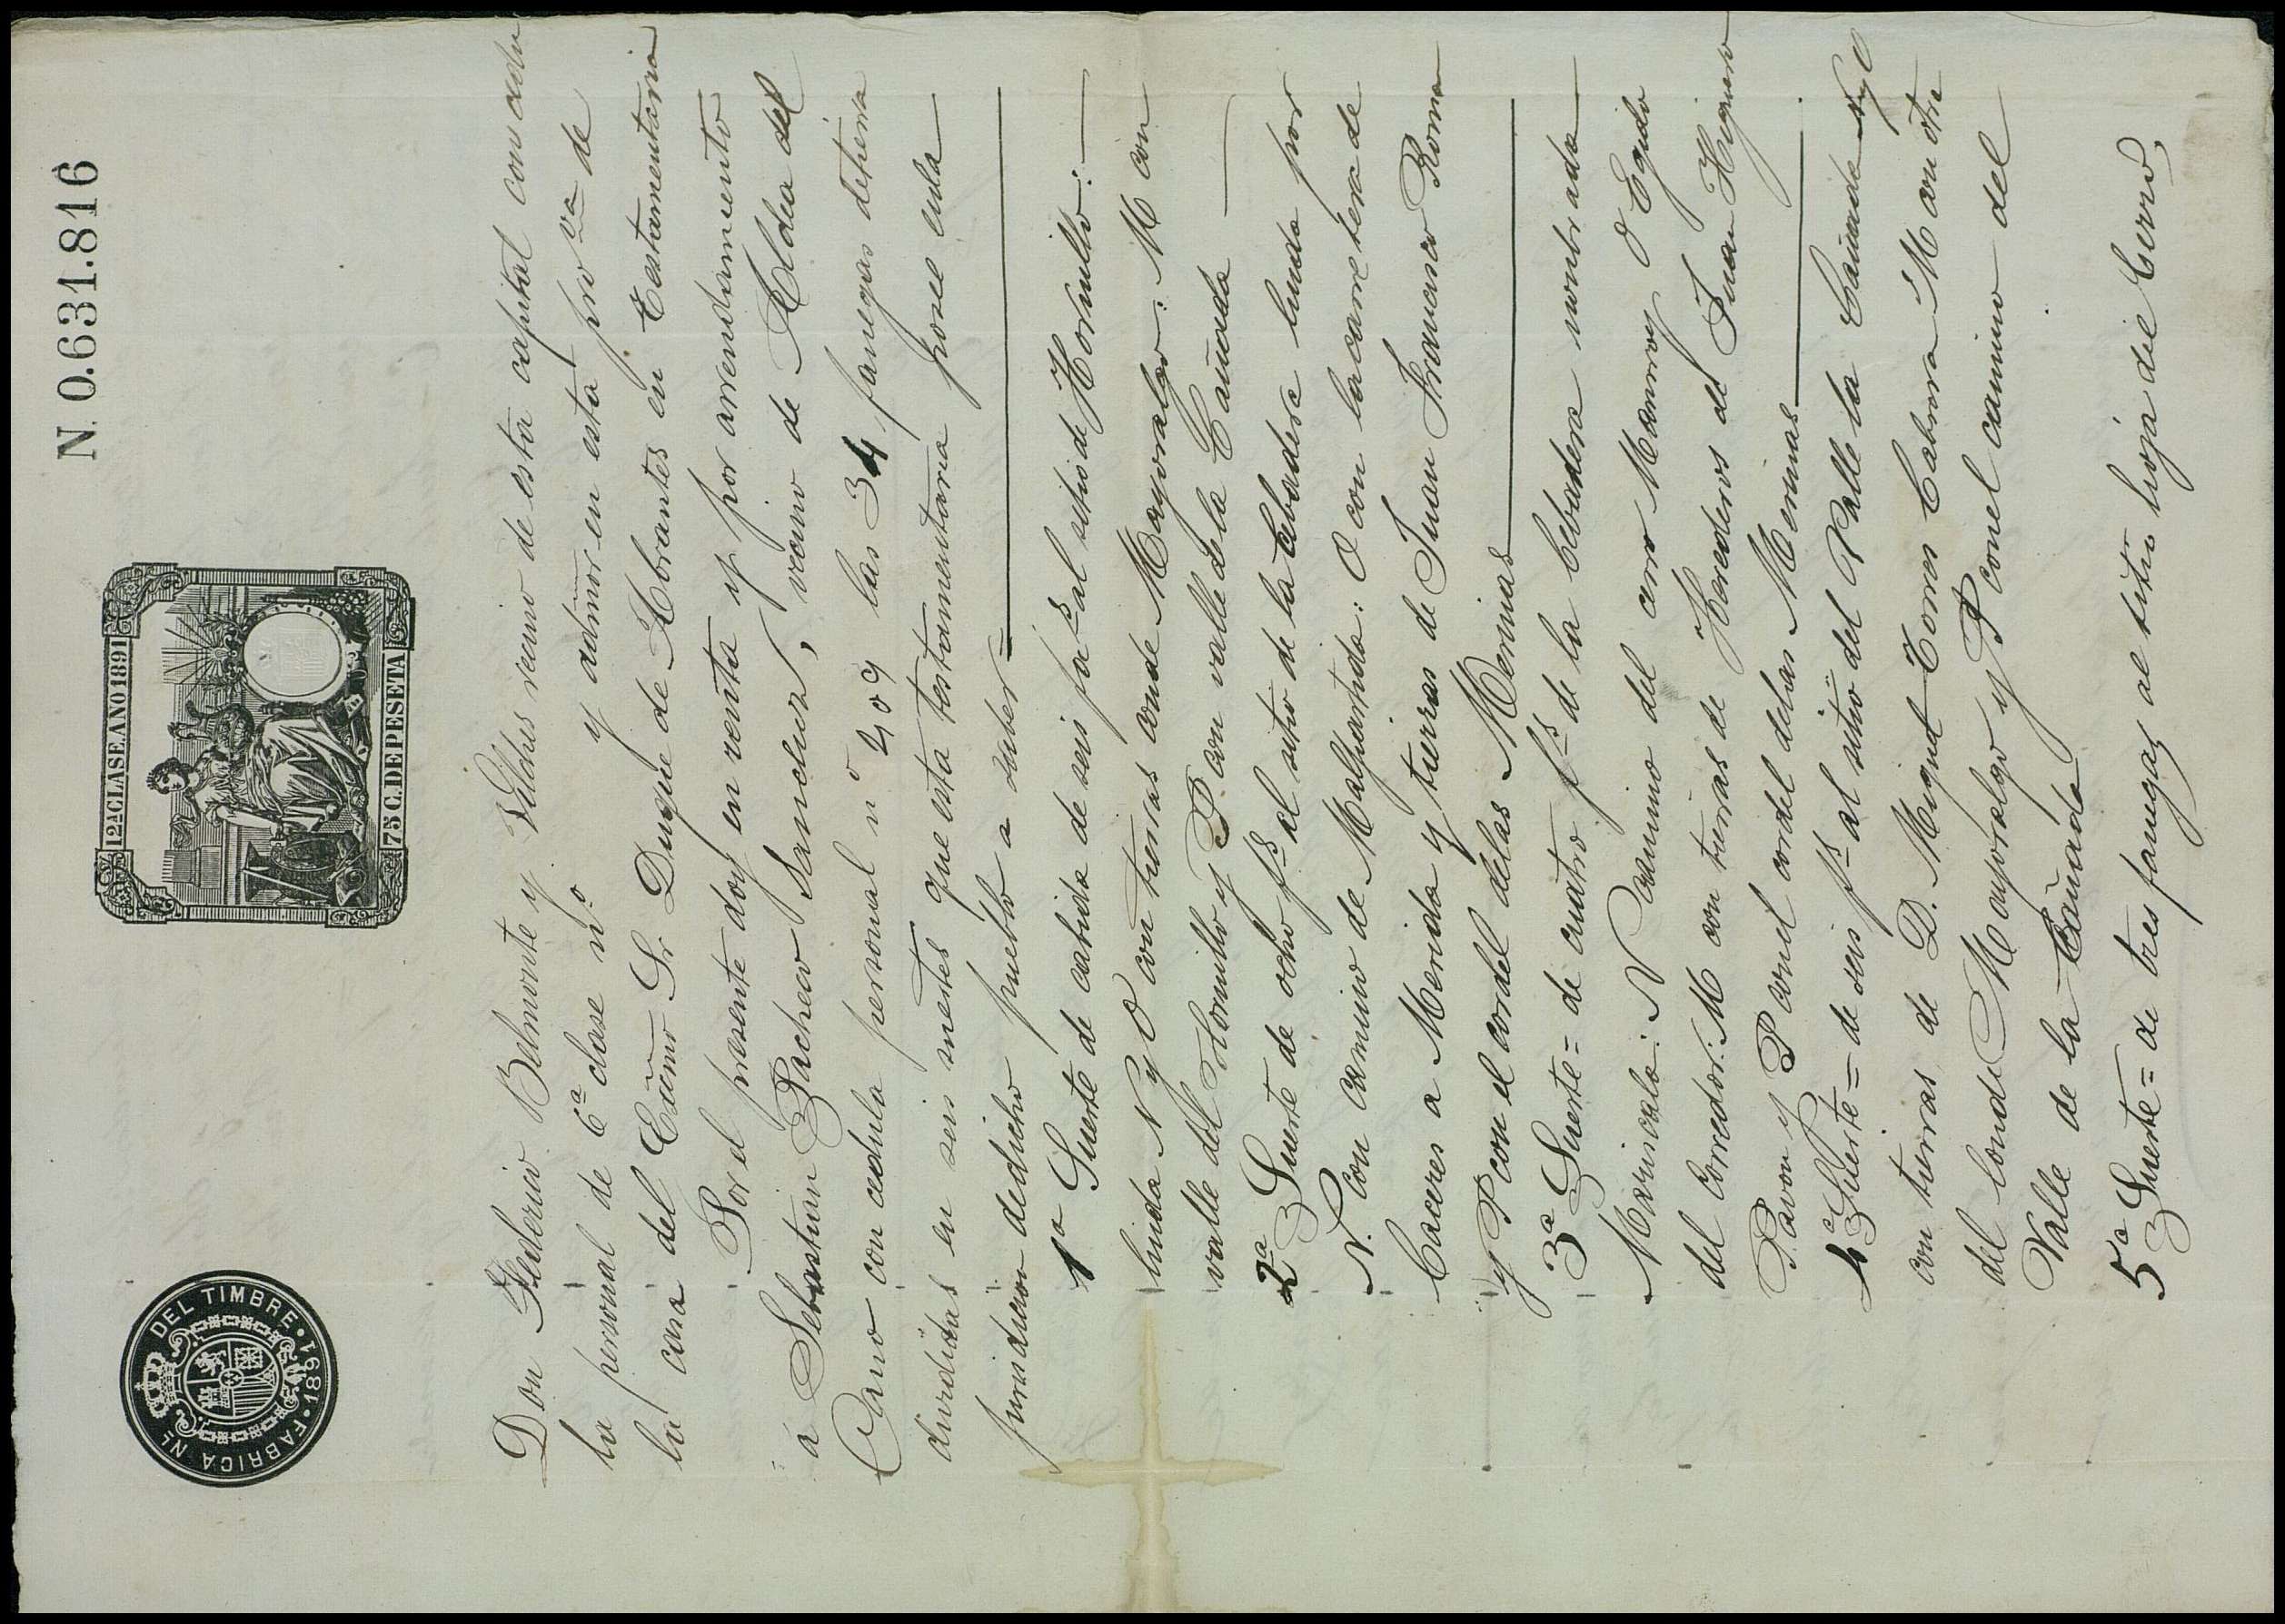 N. 0.631.816
12ª CLASE. AÑO 1891
75 C. DE PESETA
DEL TIMBRE • 1891 • FABRICA NL
Don Federico Belmonte y Villdres vecino de esta capital con cedu
la personal de 6ª clase nº y admor en esta prova de
la casa del Excmo Sr. Duque de Abrantes en Testamentaria
Por el presente doy en renta y por arrendamiento
á Sebastian Pacheco Sanchez, vecino de Aldea del
Cano con cedula personal nº 409 las 34 fanegas de tierra
divididas en seis suertes que esta testamentaria posee en la
jurisdicion de dicho pueblo a saber =
1ª Suerte de cabida de seis fas al sitio de Hornillo:
linda N y O con tierras conde Mayoralgo: M con
valle del Hornillo y P con valle de la Cañada
2ª Suerte de ocho fs al sitio de la Cebadera linda por
N. con camino de Malpartida: O con la carretera de
Caceres a Merida y tierras de Juan Francisco Roma
y P con el cordel de las Merinas
3ª Suerte = de cuatro fs de la Cebadera nombrada
Mariscala: N camino del cerro Monroy O Egido
del Corredor: M con tierras de Herederos de Juan Higuero
Pavon y P con el cordel de las Merinas
4ª Suerte = de seis fs al sitio del Valle la Cañada N y O
con tierras de D. Miguel Torres Cabrera M con otra
del Conde Mayoralgo y P con el camino del
Valle de la Cañada
5ª Suerte = de tres fanegas al sitio hoja del Cerro,